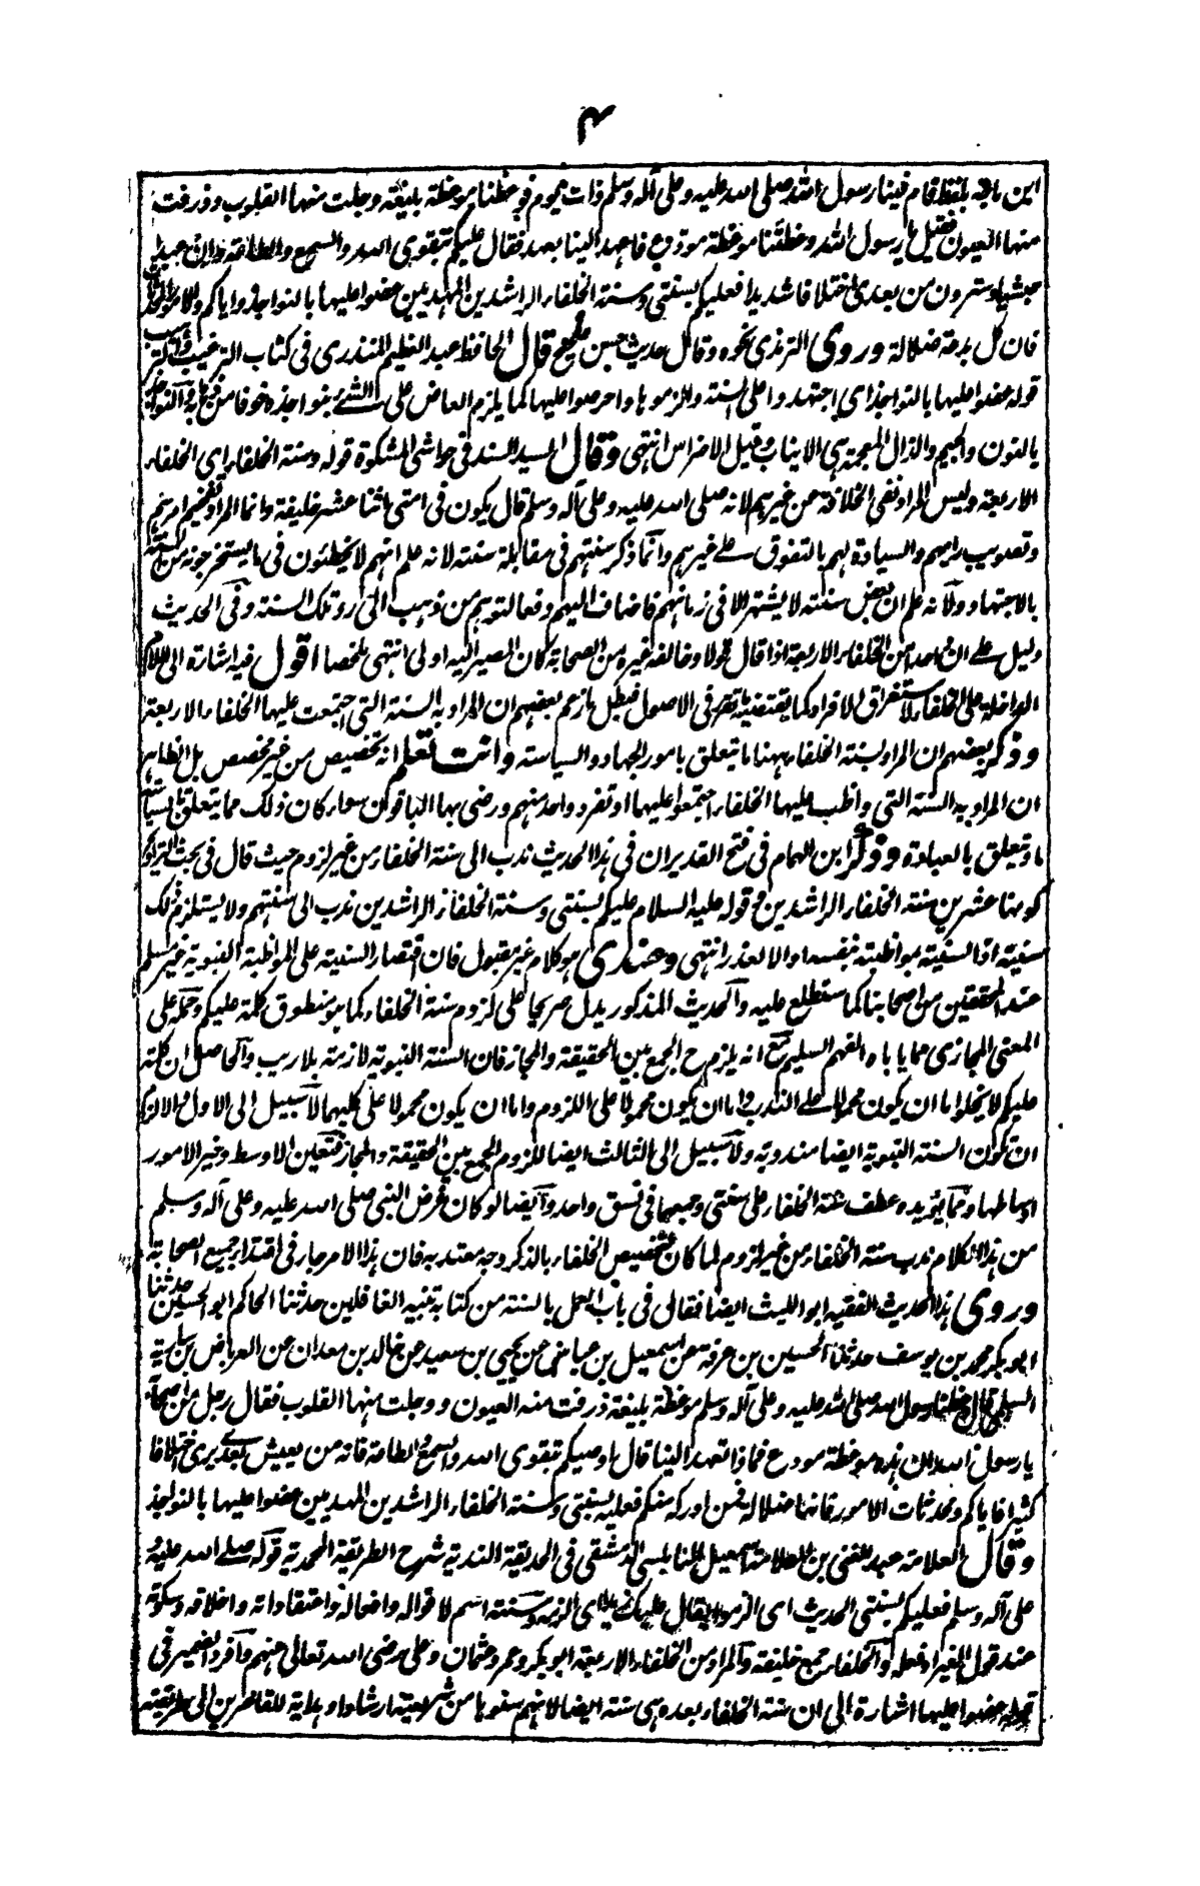 ۴
ابن ماجه بلفظ قام فينا رسول الله صلى الله عليه وعلى آله وسلم ذات يوم فوعظنا موعظة بليغة وجلت منها القلوب وذرفت
منها العيون فقيل يا رسول الله وعظتنا موعظة مودع فاعهد الينا بعهد فقال عليكم بتقوى الله والسمع والطاعة وان عبدا
حبشيا وسترون من بعدى اختلافا شديدا فعليكم بسنتى وسنة الخلفاء الراشدين المهديين عضوا عليها بالنواجذ واياكم والامور المحدثات
فان كل بدعة ضلالة وروى الترمذى نحوه وقال حديث حسن صحيح قال الحافظ عبد العظيم المنذرى فى كتاب الترغيب والترهيب
قوله عضوا عليها بالنواجذ اى اجتهدوا على السنة والزموها واحرصوا عليها كما يلزم العاض على الشئ بنواجذه خوفا من ذهابه والنواجذ
بالنون والجيم والذال المعجمة هى الانياب وقيل الاضراس انتهى وقال السيد السند فى حواشى المشكوة قوله وسنة الخلفاء اى الخلفاء
الاربعة وليس المراد نفى الخلافة عن غيرهم لانه صلى الله عليه وعلى آله وسلم قال يكون فى امتى اثنا عشر خليفة وانما المراد تفخيم امرهم
وتصويب رايهم والسيادة لهم بالتفوق على غيرهم وانما ذكر سنتهم فى مقابلة سنته لانه علم انهم لا يخطئون فى ما يستخرجونه من سنته
بالاجتهاد ولانه علم ان بعض سنته لا يشتهر الا فى زمانهم فاضاف اليهم دفعا لتوهم من ذهب الى رد تلك السنة وفى الحديث
دليل على ان واحدا من الخلفاء الاربعة اذا قال قولا وخالفه غيره من الصحابة كان المصير اليه اولى انتهى ملخصا اقول فيه اشارة الى ان اللام
الداخلة على الخلفاء لاستغراق الافراد كما يقتضيه ما تقرر فى الاصول فبطل ما زعم بعضهم ان المراد به السنة التى اجتمعت عليها الخلفاء الاربعة
وذكر بعضهم ان المراد بسنة الخلفاء ههنا ما يتعلق بامور الجهاد والسياسة وانت تعلم انه تخصيص من غير مخصص بل الظاهر
ان المراد به السنة التى واظب عليها الخلفاء اجتمعوا عليها او تفرد واحد منهم ورضى بها الباقون سواء كان ذلك مما يتعلق بالسياسة
او تعلق بالعبادة وذكر ابن الهمام فى فتح القدير ان فى هذا الحديث ندب الى سنة الخلفاء من غير لزوم حيث قال فى بحث التراويح
كونها عشرين سنة الخلفاء الراشدين وقوله عليه السلام عليكم بسنتى وسنة الخلفاء الراشدين ندب الى سنتهم ولا يستلزم ذلك
سنيته اذ السنية بمواظبته بنفسه او الا لعذر انتهى وعندى هو كلام غير مقبول فان اقتصار السنية على المواظبة النبوية غير مسلم
عند المحققين من اصحابنا كما ستطلع عليه والحديث المذكور يدل صريحا على لزوم سنة الخلفاء كما هو منطوق كلمة عليكم وحمله على
المعنى المجازى مما ياباه الفهم السليم مع انه يلزم ح الجمع بين الحقيقة والمجاز فان السنة النبوية لازمة بلا ريب والحاصل ان كلمة
عليكم لا يخلو اما ان يكون محمولا على الندب واما ان يكون محمولا على اللزوم واما ان يكون محمولا على كليهما لا سبيل الى الاول والا لزم
ان تكون السنة النبوية ايضا مندوبة ولا سبيل الى الثالث ايضا للزوم الجمع بين الحقيقة والمجاز فتعين الاوسط وخير الامور
اوساطها ومما يؤيده عطف سنة الخلفاء على سنتى وجمعهما فى نسق واحد وايضا لو كان غرض النبى صلى الله عليه وعلى آله وسلم
من هذا الكلام ندب سنة الخلفاء من غير لزوم لما كان لتخصيص الخلفاء بالذكر وجه معتد به فان هذا الامر جار فى اقتداء جميع الصحابة
وروى هذا الحديث الفقيه ابو الليث ايضا فقال فى باب العمل بالسنة من كتابه تنبيه الغافلين حدثنا الحاكم ابو الحسين حدثنا
ابو بكر محمد بن يوسف حدثنا الحسين بن عرفة عن اسمعيل بن عياض عن يحيى بن سعيد عن خالد بن معدان عن العرباض بن سارية
السلمى قال وعظنا رسول الله صلى الله عليه وعلى آله وسلم موعظة بليغة ذرفت منه العيون ووجلت منها القلوب فقال رجل من اصحابه
يا رسول الله ان هذه موعظة مودع فماذا تعهد الينا قال اوصيكم بتقوى الله والسمع والطاعة فانه من يعيش بعدى يرى اختلافا
كثيرا فاياكم ومحدثات الامور فانها ضلالة فمن ادركه منكم فعليه بسنتى وسنة الخلفاء الراشدين المهديين عضوا عليها بالنواجذ
وقال العلامة عبد الغنى بن العلامة اسمعيل النابلسى الدمشقى فى الحديقة الندية شرح الطريقة المحمدية قوله صلى الله عليه و
على آله وسلم فعليكم بسنتى الحديث اى الزموا يقال عليك زيدا اى الزمه وسنته اسم لاقواله وافعاله واعتقاداته واخلاقه وسكوته
عند قول الغير او فعله والخلفاء جمع خليفة والمراد من الخلفاء الاربعة ابو بكر وعمر وعثمان وعلى رضى الله تعالى عنهم وافرد الضمير فى
قوله عضوا عليها اشارة الى ان سنة الخلفاء بعده هى سنته ايضا لانهم سنوها من شريعته ارشادا وهداية للقاصرين الى طريقته